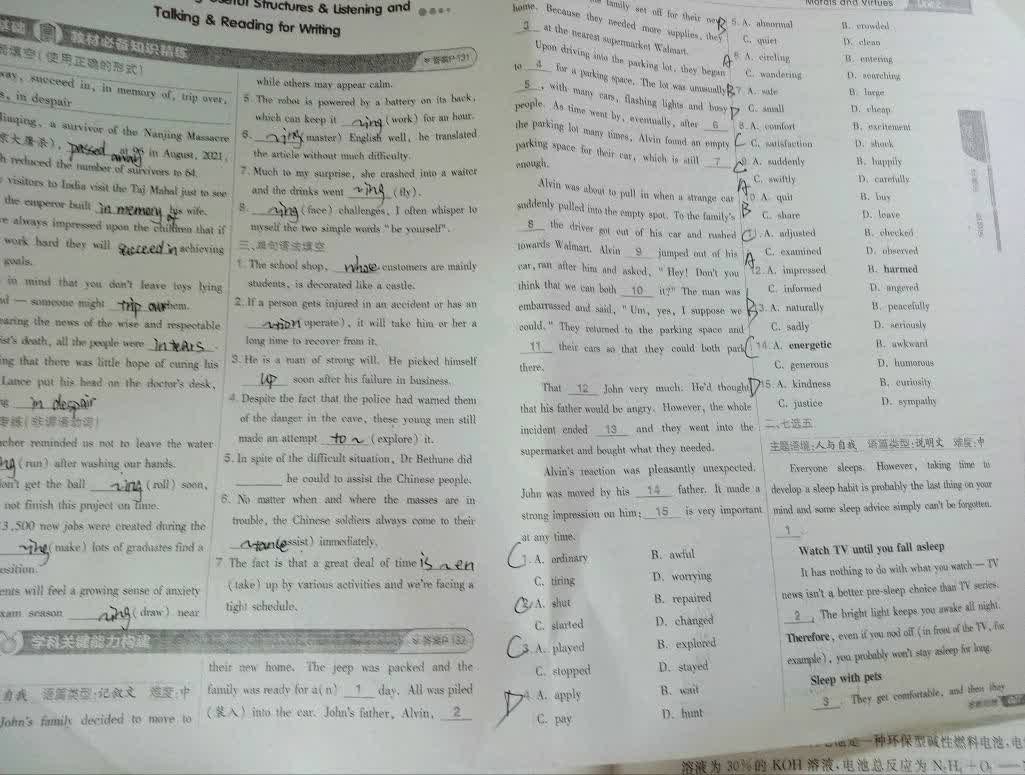 Structures & Listening and
Talking & Reading for Writing
教材必备知识精练
答案P-131
填空(使用正确的形式)
way, succeed in, in memory of, trip over,
in despair
Jiaqing, a survivor of the Nanjing Massacre
passed away at 96 in August, 2021,
reduced the number of survivors to 64.
visitors to India visit the Taj Mahal just to see
the emperor built in memory of his wife.
always impressed upon the children that if
work hard they will succeed in achieving
goals.
in mind that you don't leave toys lying
someone might trip over them.
earing the news of the wise and respectable
ist's death, all the people were in tears.
ing that there was little hope of curing his
Lance put his head on the doctor's desk,
in despair
专练(非谓语动词)
cher reminded us not to leave the water
(run) after washing our hands.
on't get the ball ing (roll) soon,
not finish this project on time.
3,500 new jobs were created during the
(make) lots of graduates find a
osition.
ents will feel a growing sense of anxiety
xam season ing (draw) near
while others may appear calm.
5. The robot is powered by a battery on its back,
which can keep it ing (work) for an hour.
6. ing (master) English well, he translated
the article without much difficulty.
7. Much to my surprise, she crashed into a waiter
and the drinks went ing (fly).
8. ing (face) challenges, I often whisper to
myself the two simple words "be yourself".
三、单句语法填空
1. The school shop, whose customers are mainly
students, is decorated like a castle.
2. If a person gets injured in an accident or has an
(operate), it will take him or her a
long time to recover from it.
3. He is a man of strong will. He picked himself
up soon after his failure in business.
4. Despite the fact that the police had warned them
of the danger in the cave, these young men still
made an attempt to ~ (explore) it.
5. In spite of the difficult situation, Dr Bethune did
he could to assist the Chinese people.
6. No matter when and where the masses are in
trouble, the Chinese soldiers always come to their
(assist) immediately.
7. The fact is that a great deal of time is ~en
(take) up by various activities and we're facing a
tight schedule.
学科关键能力构建
答案P-132
自我 语篇类型:记叙文 难度:中
John's family decided to move to
their new home. The jeep was packed and the
family was ready for a(n) 1 day. All was piled
(装入) into the car. John's father, Alvin, 2
family set off for their new
home. Because they needed more supplies, they
3 at the nearest supermarket Walmart.
Upon driving into the parking lot, they began
to 4 for a parking space. The lot was unusually
5, with many cars, flashing lights and busy
people. As time went by, eventually, after 6
the parking lot many times, Alvin found an empty
parking space for their car, which is still 7
enough.
Alvin was about to pull in when a strange car
suddenly pulled into the empty spot. To the family's
8 the driver got out of his car and rushed
towards Walmart. Alvin 9 jumped out of his
car, ran after him and asked, "Hey! Don't you
think that we can both 10 it?" The man was
embarrassed and said, "Um, yes, I suppose we
could." They returned to the parking space and
11 their cars so that they could both park
there.
That 12 John very much. He'd thought
that his father would be angry. However, the whole
incident ended 13 and they went into the
supermarket and bought what they needed.
Alvin's reaction was pleasantly unexpected.
John was moved by his 14 father. It made a
strong impression on him: 15 is very important
at any time.
C 1. A. ordinary B. awful
C. tiring D. worrying
2. A. shut B. repaired
C. started D. changed
C 3. A. played B. explored
C. stopped D. stayed
D 4. A. apply B. wait
C. pay D. hunt
Morals and Virtues
B 5. A. abnormal B. crowded
C. quiet D. clean
A 6. A. circling B. entering
C. wandering D. searching
B 7. A. safe B. large
C. small D. cheap
D 8. A. comfort B. excitement
C. satisfaction D. shock
9. A. suddenly B. happily
C. swiftly D. carefully
10. A. quit B. buy
C. share D. leave
11. A. adjusted B. checked
C. examined D. observed
A 12. A. impressed B. harmed
C. informed D. angered
B 13. A. naturally B. peacefully
C. sadly D. seriously
C 14. A. energetic B. awkward
C. generous D. humorous
D 15. A. kindness B. curiosity
C. justice D. sympathy
二、七选五
主题语境:人与自我 语篇类型:说明文 难度:中
Everyone sleeps. However, taking time to
develop a sleep habit is probably the last thing on your
mind and some sleep advice simply can't be forgotten.
1
Watch TV until you fall asleep
It has nothing to do with what you watch — TV
news isn't a better pre-sleep choice than TV series.
2 The bright light keeps you awake all night.
Therefore, even if you nod off (in front of the TV, for
example), you probably won't stay asleep for long.
Sleep with pets
3. They get comfortable, and then they
一种环保型碱性燃料电池,电
溶液为30%的KOH溶液,电池总反应为N₂H₄+O₂